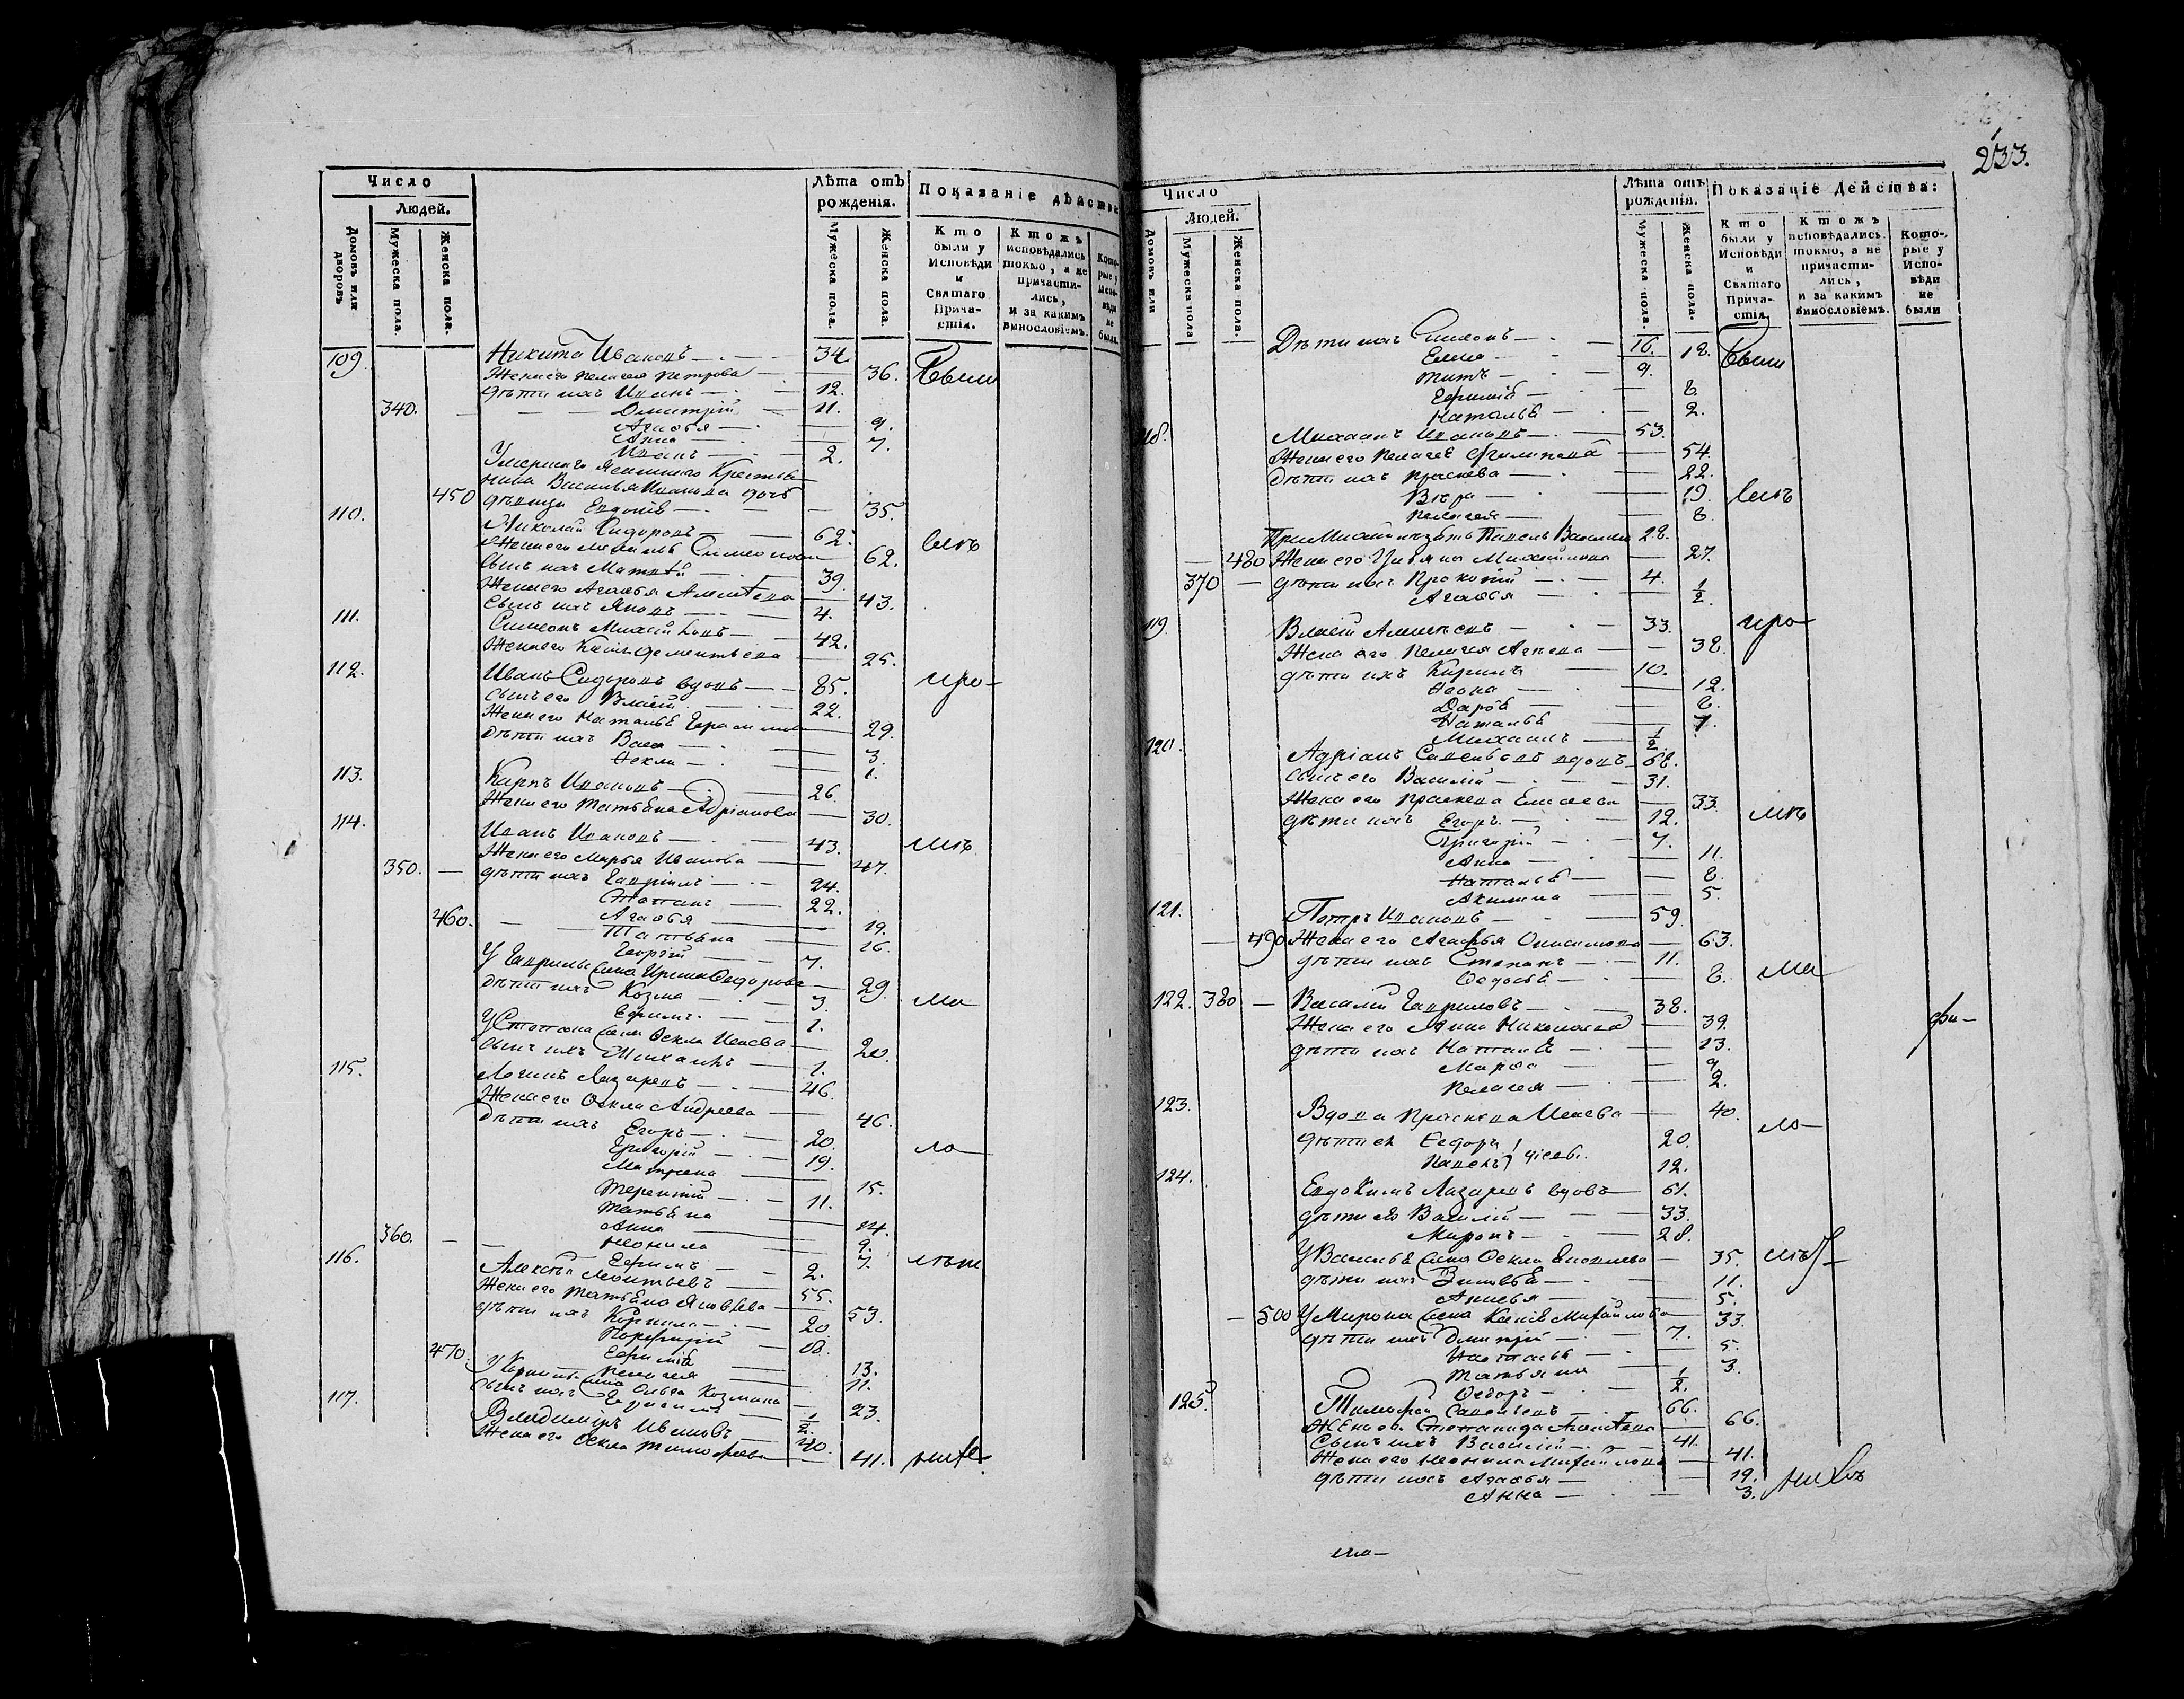 233.
Число
Людей.
Домовъ или дворовъ
Мужеска пола.
Женска пола.
Лѣта отъ рожденія.
Мужеска пола.
Женска пола.
Показаніе дѣйства
Кто были у Исповѣди и Святаго Прича-стія.
Ктожъ исповѣдались токмо, а не причасти-лись, и за какимъ винословіемъ.
Кото-рые у Испо-вѣди не были.
109. Никита Ивановъ — 34
Жена его Пелагея Петрова — 36. были
дѣти ихъ Иванъ — 12.
340. — Дмитрій — 11.
Агаѳья — 9.
Анна — 7.
Иванъ — 2.
Умершаго Крестья-
нина Василья Иванова дочь
450 дѣвица Евдокія — 35.
110. Николай Сидоровъ — 62. всѣ
Жена его Симеонова 62.
Сынъ ихъ Матвѣй — 39.
Жена его Агаѳья — 43.
Сынъ ихъ Яковъ — 4.
111. Симеонъ Михайловъ — 42.
Жена его Дементьева — 25.
112. Иванъ Сидоровъ вдовъ — 85. про-
Сынъ его Власій — 22.
Жена его Наталья — 29.
дѣти ихъ Васса — 3.
Ѳекла — 1.
113. Карпъ Ивановъ — 26.
Жена его Татьяна Адріанова — 30.
114. Иванъ Ивановъ — 43.
Жена его Марья Иванова — 47.
350. — дѣти ихъ Гавріилъ — 24.
Степанъ — 22.
460. — Агаѳья — 19.
Татьяна — 16.
Георгій — 7.
У Гаврилы жена Ирина Ѳедорова — 29.
дѣти ихъ Козма — 3.
Ефимъ — 1.
У Степана жена Ѳекла Исаева — 20.
сынъ ихъ Михаилъ — 1.
115. Логинъ Лазаревъ — 46.
Жена его Ѳекла Андреева — 46.
дѣти ихъ Егоръ — 20.
Григорій — 19.
Матрена — 15.
Терентій — 11.
Татьяна — 14.
Анна — 9.
360. — Неонила — 7.
Ефимъ — 2.
116. Алексѣй Леонтьевъ — 55.
Жена его Татьяна Яковлева — 53.
дѣти ихъ Корнила — 20.
Порфирій — 18.
470. Ефимія — 13.
Пелагея — 11.
У Корнилы жена Ольга Козмина — 23.
сынъ ихъ — ½.
117. Владиміръ Ивановъ — 40.
Жена его Ѳекла Тимофеева — 41.
Число
Людей.
Домовъ или
Мужеска пола
Женска пола.
Лѣта отъ рожденія.
Мужеска пола.
Женска пола.
Показаніе Дѣйства:
Кто были у Исповѣди и Святаго Прича-стія.
Ктожъ исповѣдались токмо, а не причасти-лись, и за какимъ винословіемъ.
Кото-рые у Испо-вѣди не были
Дѣти ихъ Симеонъ — 16.
Елена — 12. были
Титъ — 9.
Ефимія — 8.
Наталья — 2.
118. Михаилъ Ивановъ — 53.
Жена его Пелагея Филипова — 54.
дѣти ихъ Праскева — 22.
Вѣра — 19. всѣ
Пелагея — 8.
Павелъ Васильевъ 28.
480 Жена его Ульяна Михайлова — 27.
370 — дѣти ихъ Прокопій — 4.
Агаѳья — ½.
119. Власій Алексѣевъ — 33. про-
Жена его Пелагея — 38.
дѣти ихъ Кирилъ — 10.
12.
Дарья — 8.
Наталья — 7.
Михаилъ — ½.
120. Адріанъ Савельевъ вдовъ 68.
сынъ его Василій — 31.
Жена его Праскева Елисеева — 33.
дѣти ихъ Егоръ — 12.
Григорій — 7.
Анна — 11.
Наталья — 8.
Акилина — 5.
121. Петръ Ивановъ — 59.
490 Жена его Агаѳья Онисимова — 63.
дѣти ихъ Степанъ — 11.
Ѳедосья — 8.
122. 380 — Василій Гавриловъ — 38.
Жена его Анна Николаева — 39.
дѣти ихъ Наталья — 13.
Марѳа — 9.
Пелагея — 2.
123. Вдова Праскева Исаева — 40.
дѣти ея Ѳедоръ 20.
Павелъ 12.
124. Евдокимъ Лазаревъ вдовъ — 61.
дѣти его Василій — 33.
Миронъ — 28.
У Василья жена Ѳекла — 35.
дѣти ихъ Зиновья — 11.
Анисья — 5.
500 У Мирона жена Ксенія Михайлова 33.
дѣти ихъ Дмитрій — 7.
Наталья — 5.
Татьяна — 3.
Ѳедоръ — ½.
125. Тимофей Савельевъ — 66.
Жена его Степанида — 66.
Сынъ ихъ Василій — 41.
Жена его Неонила Михайлова — 41.
дѣти ихъ Агаѳья — 19.
Анна — 3.